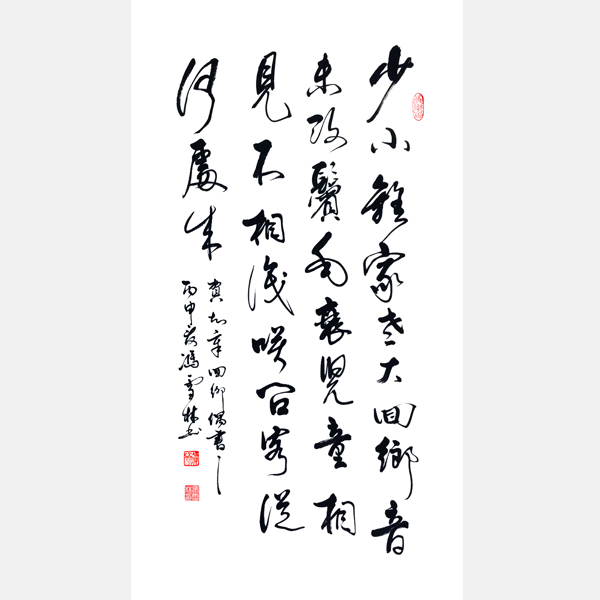 少小離家老大回鄉音
未改鬢毛衰兒童相
見不相識咲問客從
何處來
賀知章回鄉偶書一
丙申夏馮雪林書